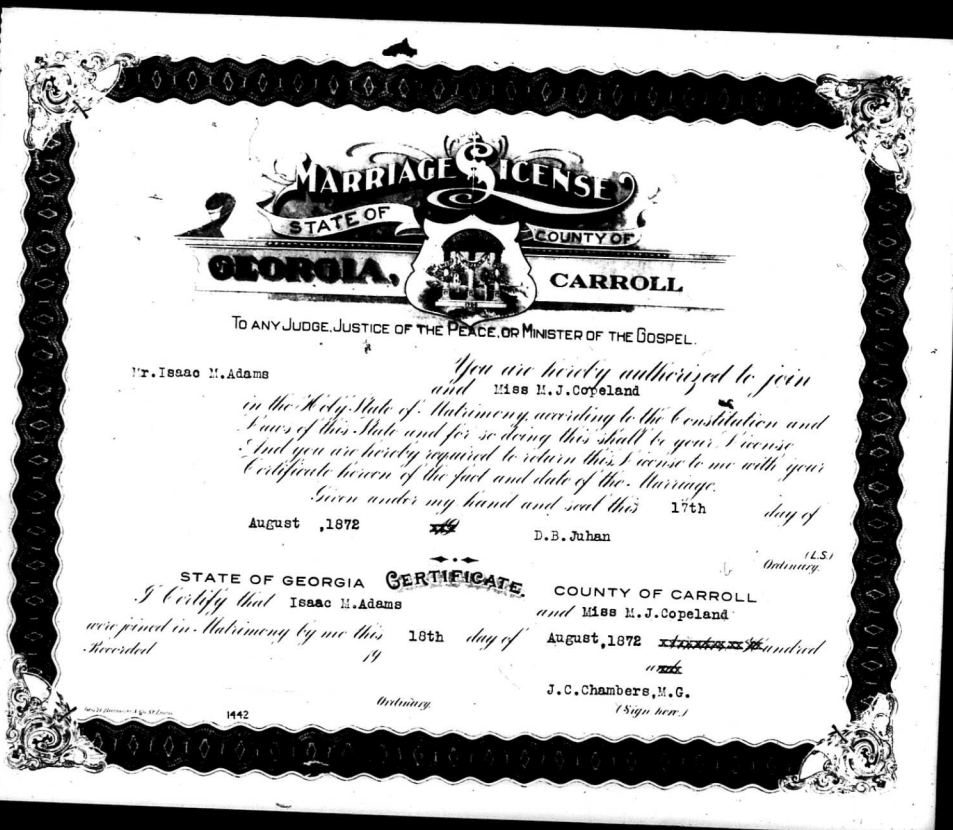 MARRIAGE LICENSE
STATE OF COUNTY OF
GEORGIA, CARROLL
TO ANY JUDGE, JUSTICE OF THE PEACE, OR MINISTER OF THE GOSPEL.
You are hereby authorized to join
Mr.Isaac M.Adams and Miss M.J.Copeland
in the Holy State of Matrimony, according to the Constitution and
Laws of this State and for so doing this shall be your License
And you are hereby required to return this License to me with your
Certificate hereon of the fact and date of the Marriage.
Given under my hand and seal this 17th day of
August ,1872
D.B.Juhan
(L.S.)
Ordinary.
CERTIFICATE.
STATE OF GEORGIA COUNTY OF CARROLL
I Certify that Isaac M.Adams and Miss M.J.Copeland
were joined in Matrimony by me this 18th day of August,1872 hundred
Recorded 19
J.C.Chambers,M.G.
Ordinary. (Sign here.)
1442